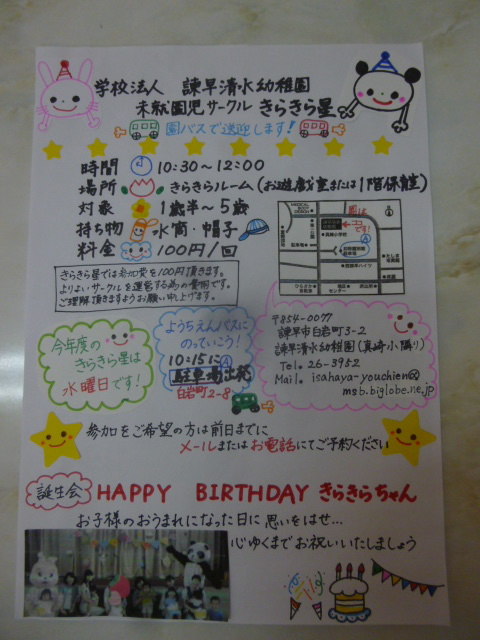 学校法人 諫早清水幼稚園
未就園児サークル きらきら星
園バスで送迎します！
時間 10:30～12:00
場所 きらきらルーム（お遊戯室または1階保育室）
対象 1歳半～5歳
持ち物 水筒・帽子
料金 100円/回
きらきら星では参加費を100円頂きます。
よりよいサークルを運営する為の費用です。
ご理解頂きますようお願い申し上げます。
今年度の
きらきら星は
水曜日です！
ようちえんバスに
のっていこう！
10:15に Ⓐ
駐車場出発
白岩町2-8
〒854-0077
諫早市白岩町3-2
諫早清水幼稚園（真崎小隣り）
Tel. 26-3952
Mail. isahaya-youchien@
msb.biglobe.ne.jp
参加をご希望の方は前日までに
メールまたはお電話にてご予約ください
誕生会 HAPPY BIRTHDAY きらきらちゃん
お子様のおうまれになった日に思いをはせ…
心ゆくまでお祝いいたしましょう